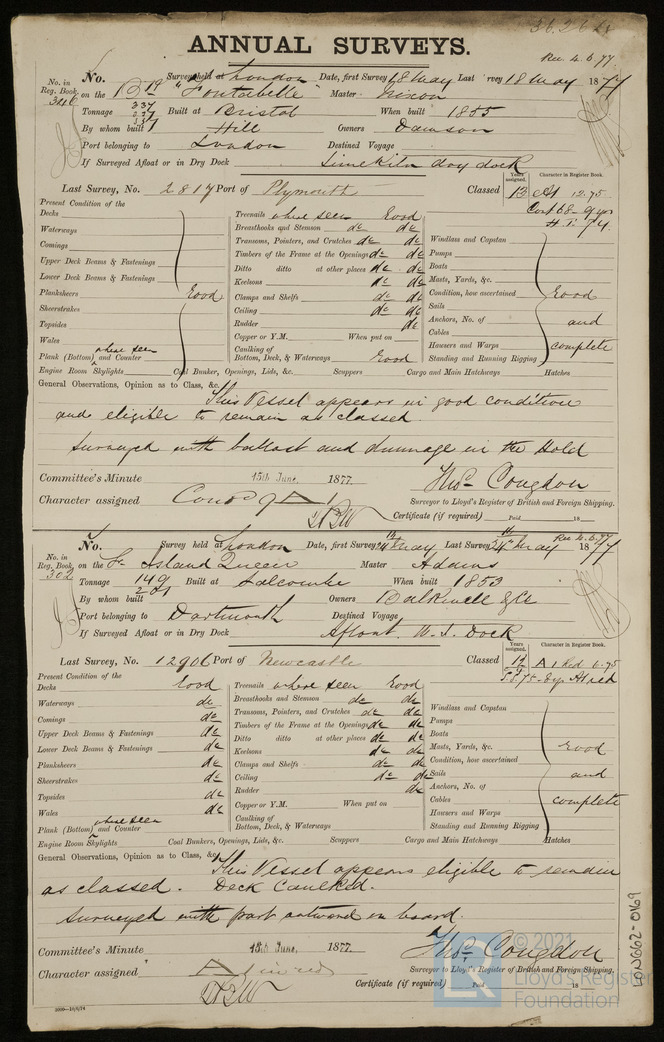 36.26
ANNUAL SURVEYS.
Rec 4.6.77
No. in Reg. Book 346
No. Survey held at London Date, first Survey 18 May Last Survey 18 May 1877
on the Bk "Fontabelle" Master Nixon
Tonnage 337 337 Built at Bristol When built 1855
By whom built Hill Owners Dawson
Port belonging to London Destined Voyage
If Surveyed Afloat or in Dry Dock Limekiln dry dock
Last Survey, No. 2817 Port of Plymouth Classed Years assigned. 13 Character in Register Book. A1 12.75
Cont 68-9 yrs
H.T. 74.
Present Condition of the
Decks
Waterways
Comings
Upper Deck Beams & Fastenings
Lower Deck Beams & Fastenings
Planksheers Good
Sheerstrakes
Topsides
Wales
Plank (Bottom) where seen and Counter
Treenails where seen Good
Breasthooks and Stemson do do
Transoms, Pointers, and Crutches do do
Timbers of the Frame at the Openings do do
Ditto ditto at other places do do
Keelsons do do
Clamps and Shelfs do do
Ceiling do do
Rudder do
Copper or Y.M. When put on
Caulking of
Bottom, Deck, & Waterways Good
Windlass and Capstan
Pumps
Boats
Masts, Yards, &c.
Condition, how ascertained Good
Sails
Anchors, No. of and
Cables
Hawsers and Warps complete
Standing and Running Rigging
Engine Room Skylights Coal Bunker, Openings, Lids, &c. Scuppers Cargo and Main Hatchways Hatches
General Observations, Opinion as to Class, &c.
This Vessel appears in good condition
and eligible to remain as classed.
Surveyed with ballast and dunnage in the Hold
Committee's Minute 15th June, 1877.
Thos Congdon
Character assigned Cont 9 A1
Surveyor to Lloyd's Register of British and Foreign Shipping.
Certificate (if required) Paid 18
Rec 4.6.77
No. in Reg. Book 302
No. Survey held at London Date, first Survey 24th May Last Survey 24th May 1877
on the Sr Island Queen Master Adams
Tonnage 149 Built at Salcombe When built 1853
By whom built Owners Balkwill & Co
Port belonging to Dartmouth Destined Voyage
If Surveyed Afloat or in Dry Dock Afloat. W. I. Dock
Last Survey, No. 12906 Port of Newcastle Classed Years assigned. Character in Register Book. A1 Red 6.75
Present Condition of the
Decks Good
Waterways do
Comings do
Upper Deck Beams & Fastenings do
Lower Deck Beams & Fastenings do
Planksheers do
Sheerstrakes do
Topsides do
Wales do
Plank (Bottom) where seen and Counter
Treenails where seen Good
Breasthooks and Stemson do do
Transoms, Pointers, and Crutches do do
Timbers of the Frame at the Openings do do
Ditto ditto at other places do do
Keelsons do do
Clamps and Shelfs do do
Ceiling do do
Rudder do
Copper or Y.M. When put on
Caulking of
Bottom, Deck, & Waterways
Windlass and Capstan
Pumps
Boats
Masts, Yards, &c. Good
Condition, how ascertained
Sails and
Anchors, No. of
Cables complete
Hawsers and Warps
Standing and Running Rigging
Engine Room Skylights Coal Bunkers, Openings, Lids, &c. Scuppers Cargo and Main Hatchways Hatches
General Observations, Opinion as to Class, &c.
This Vessel appears eligible to remain
as classed. Deck Caulked.
Surveyed with part outward on board.
Committee's Minute 15th June, 1877.
Thos Congdon
Character assigned A1 in red
Surveyor to Lloyd's Register of British and Foreign Shipping.
Certificate (if required) Paid 18
LON662-0169
© 2021
Lloyd's Register
Foundation